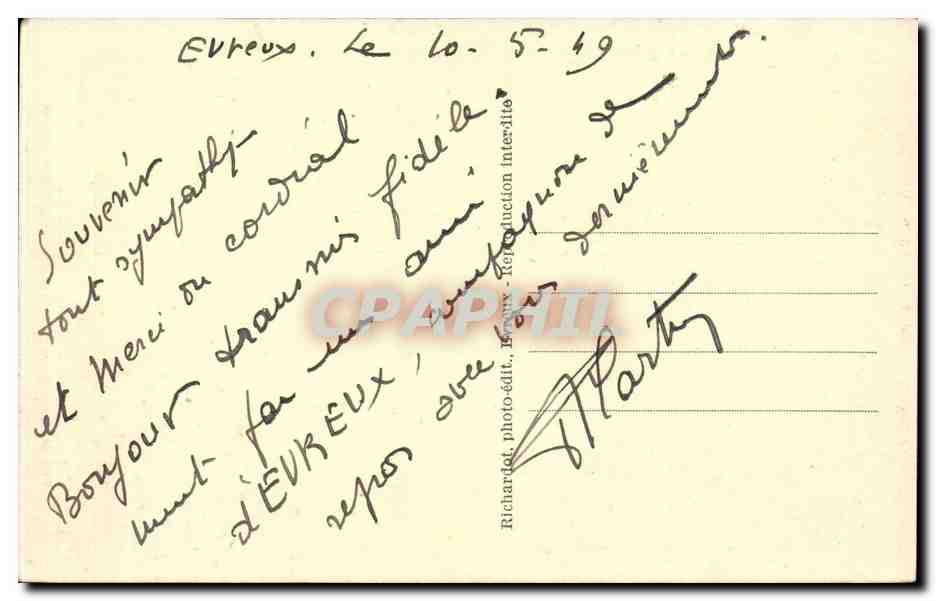 Evreux. Le 10-5-49
Souvenir
tout sympathique
et Merci du cordial
Bonjour transmis fidèle-
ment par un ami
d'EVREUX, compagnon de
repos avec vous dernièrement.
Marty
Richardot, photo-édit., Evreux - Reproduction interdite
CPAPHIL